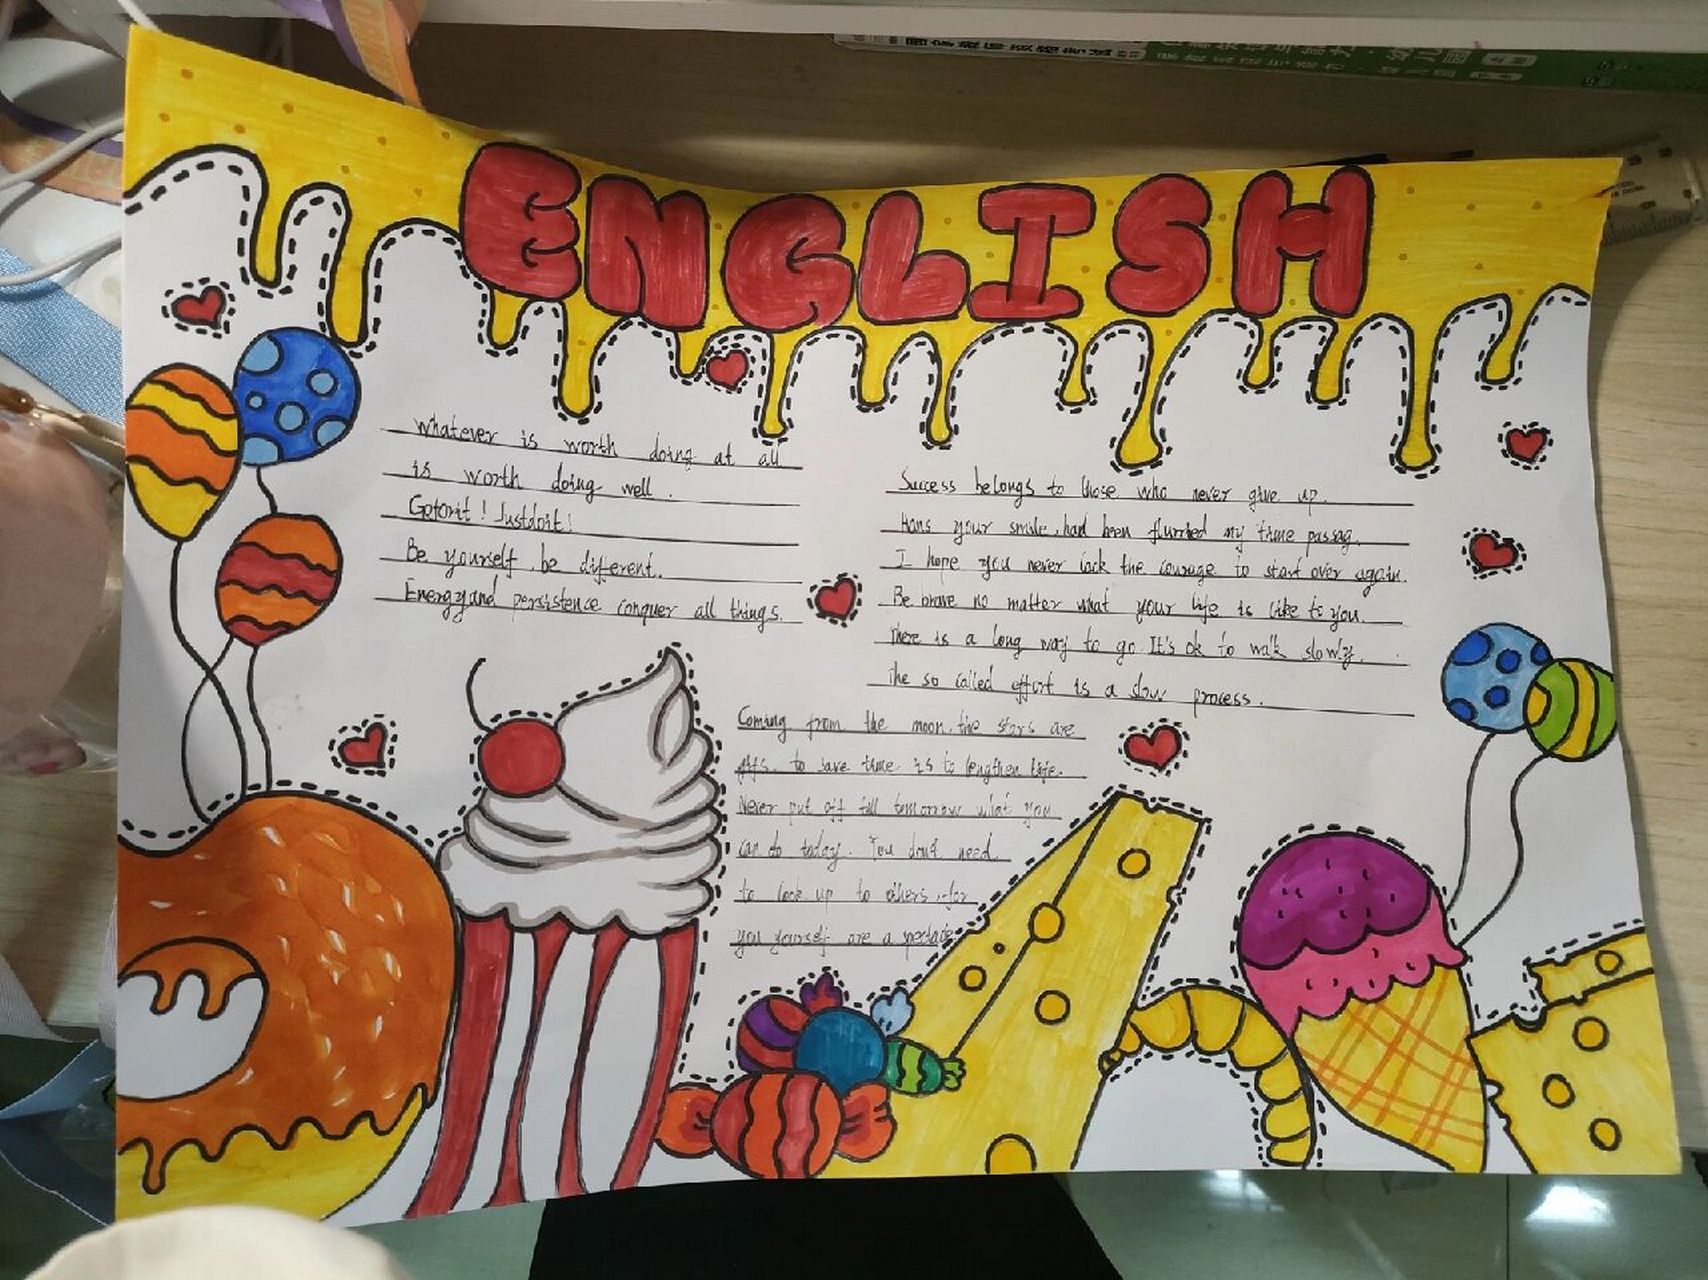 ENGLISH
whatever is worth doing at all
is worth doing well.
Getorit! Justdoit!
Be yourself, be different.
Energyand persistence conquer all things.
Success belongs to those who never give up.
Hans your smile, had been flurried my time passag.
I hope you never lack the courage to start over again.
Be brave no matter what your life is like to you.
There is a long way to go It's ok to walk slowly.
the so called effort is a slow process.
Coming from the moon, the stars are
gifs. to save time is to lengthen life.
Never put off till tomorrow what you
can do today. You don't need
to look up to others, for
you yourself are a